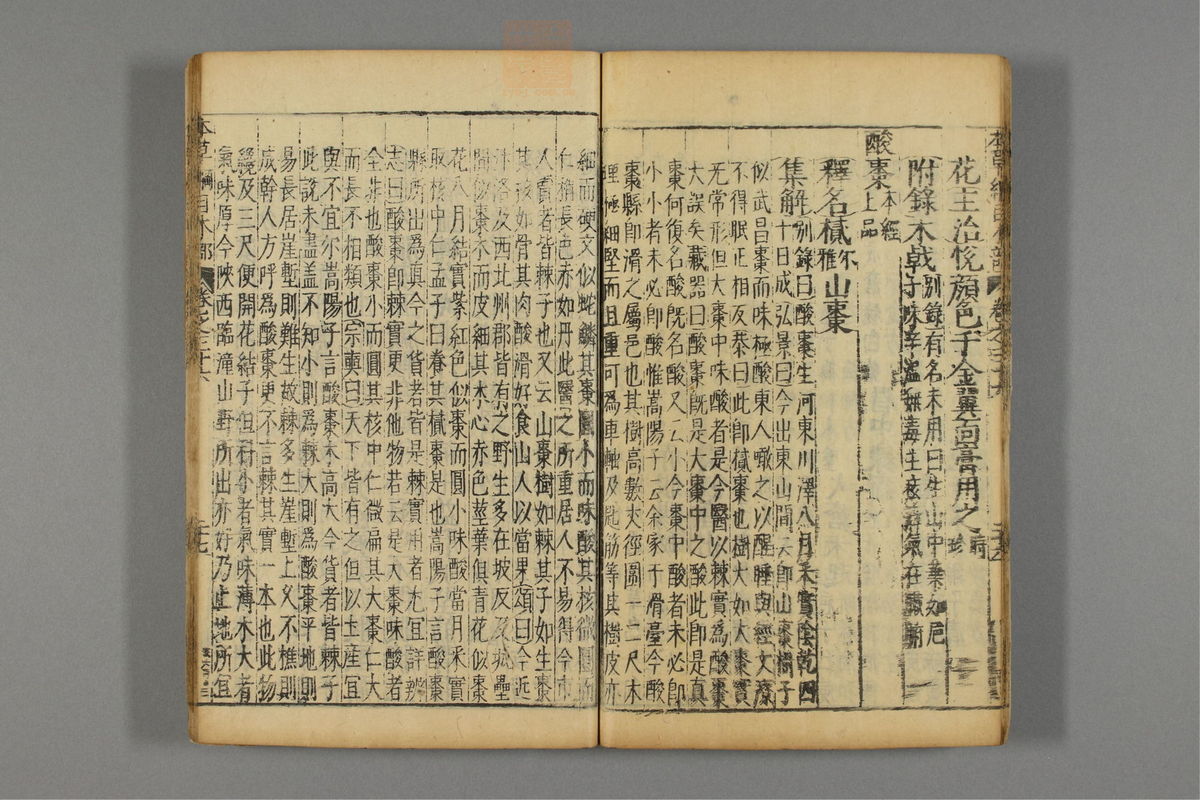 花主治悅顏色千金翼面膏用之時珍
附錄木戟別錄有名未用曰生山中葉如巵
子味辛溫無毒主痃癖氣在臟腑
酸棗本經上品
釋名樲爾雅山棗
集解別錄曰酸棗生河東川澤八月采實陰乾四
十日成弘景曰今出東山間云即山棗樹子
似武昌棗而味極酸東人噉之以醒睡與經文療
不得眠正相反恭曰此即樲棗也樹大如大棗實
无常形但大棗中味酸者是今醫以棘實為酸棗
大誤矣藏器曰酸棗既是大棗中之酸此即是真
棗何復名酸既名酸又云小今棗中酸者未必即
小小者未必即酸惟嵩陽子云余家于滑臺今酸
棗縣即滑之屬邑也其樹高數丈徑圍一二尺木
理極細堅而且重可為車軸及匙筯等其樹皮亦
細而硬文似蛇鱗其棗圓小而味酸其核微圓而
仁稍長色赤如丹此醫之所重居人不易得今市
人賣者皆棘子也又云山棗樹如棘其子如生棗
其核如骨其肉酸滑好食山人以當果頌曰今近
汴洛及西北州郡皆有之野生多在坡坂及城壘
間似棗木而皮細其木心赤色莖葉俱青花似棗
花八月結實紫紅色似棗而圓小味酸當月采實
取核中仁孟子曰養其樲棗是也嵩陽子言酸棗
縣所出為真今之貨者皆是棘實用者尤宜詳辨
志曰酸棗即棘實更非他物若云是大棗味酸者
全非也酸棗小而圓其核中仁微扁其大棗仁大
而長不相類也宗奭曰天下皆有之但以土產宜
與不宜尔嵩陽子言酸棗木高大今貨者皆棘子
此說未盡蓋不知小則為棘大則為酸棗平地則
易長居崖塹則難生故棘多生崖塹上久不樵則
成幹人方呼為酸棗更不言棘其實一本也此物
纔及三尺便開花結子但科小者氣味薄木大者
氣味厚今陝西臨潼山野所出亦好乃土地所宜